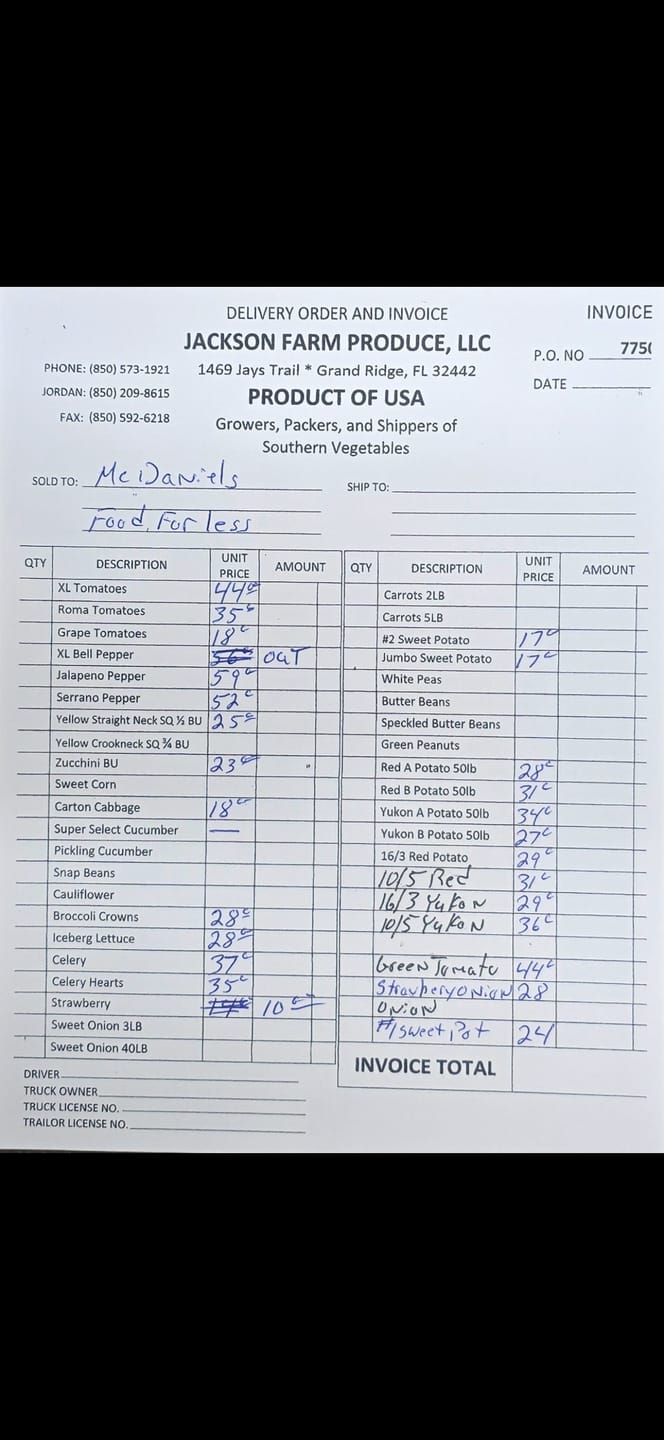 DELIVERY ORDER AND INVOICE
INVOICE
JACKSON FARM PRODUCE, LLC
P.O. NO 7750
PHONE: (850) 573-1921
1469 Jays Trail * Grand Ridge, FL 32442
JORDAN: (850) 209-8615
PRODUCT OF USA
DATE
FAX: (850) 592-6218
Growers, Packers, and Shippers of
Southern Vegetables
SOLD TO: McDaniels
SHIP TO:
Food For less
QTY DESCRIPTION UNIT PRICE AMOUNT
XL Tomatoes 44
Roma Tomatoes 35
Grape Tomatoes 18
XL Bell Pepper OUT
Jalapeno Pepper 59
Serrano Pepper 52
Yellow Straight Neck SQ ½ BU 25
Yellow Crookneck SQ ¾ BU
Zucchini BU 23
Sweet Corn
Carton Cabbage 18
Super Select Cucumber —
Pickling Cucumber
Snap Beans
Cauliflower
Broccoli Crowns 28
Iceberg Lettuce 28
Celery 37
Celery Hearts 35
Strawberry 10
Sweet Onion 3LB
Sweet Onion 40LB
QTY DESCRIPTION UNIT PRICE AMOUNT
Carrots 2LB
Carrots 5LB
#2 Sweet Potato 17
Jumbo Sweet Potato 17
White Peas
Butter Beans
Speckled Butter Beans
Green Peanuts
Red A Potato 50lb 28
Red B Potato 50lb 31
Yukon A Potato 50lb 34
Yukon B Potato 50lb 27
16/3 Red Potato 29
10/5 Red 31
16/3 Yukon 29
10/5 Yukon 36
Green Tomato 44
Strawbery Onion 28
Onion
#1 Sweet Pot 24
INVOICE TOTAL
DRIVER
TRUCK OWNER
TRUCK LICENSE NO.
TRAILOR LICENSE NO.